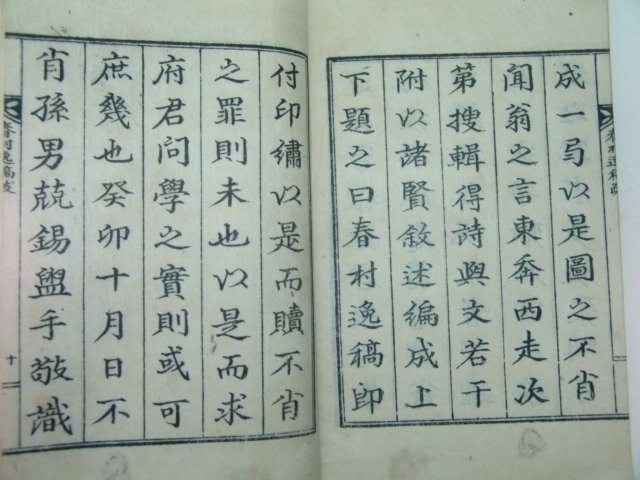 成一弓以是圖之不肖
聞翁之言東奔西走次
第搜輯得詩與文若干
附以諸賢敘述編成上
下題之曰春村逸稿即
付印繡以是而贖不肖
之罪則未也以是而求
府君問學之實則或可
庶幾也癸卯十月日不
肖孫男兢錫盥手敬識
春村逸稿跋
春村逸稿跋
十